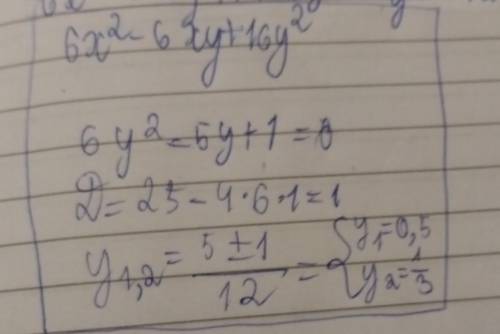 6x²-6xy+16y²
6y²-5y+1=0
D=25-4·6·1=1
y₁,₂= 5±1/12 = { y₁=0,5 y₂=1/3